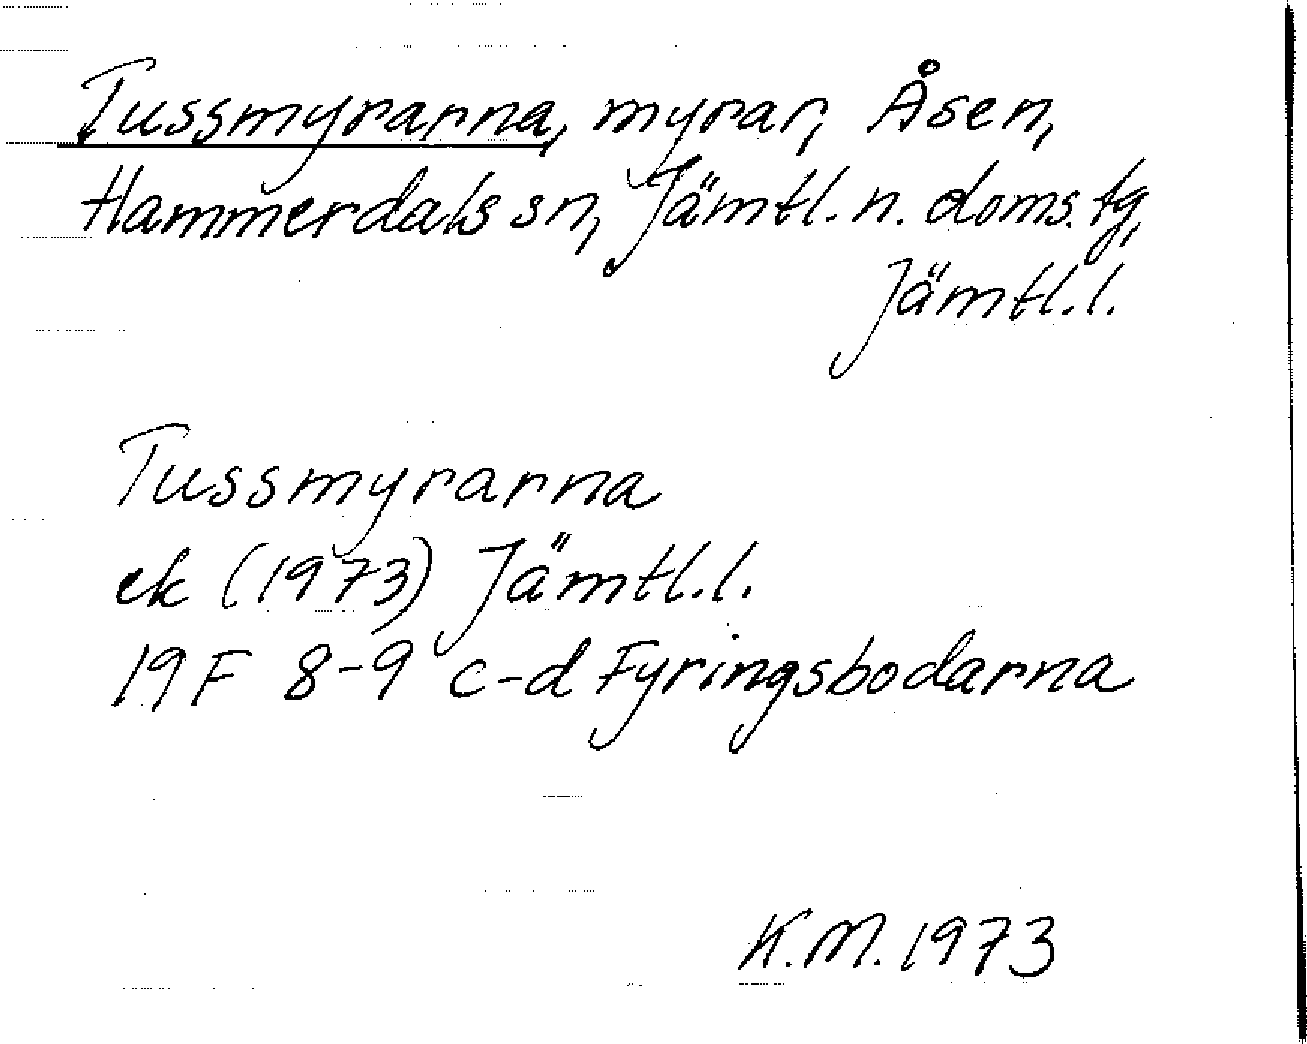 Tussmyrarna, myrar, Åsen,
Hammerdals sn, Jämtl. n. doms. tg,
Jämtl. l.
Tussmyrarna
ek (1973) Jämtl. l.
19 F 8-9 c-d Fyringsbodarna
K.M. 1973